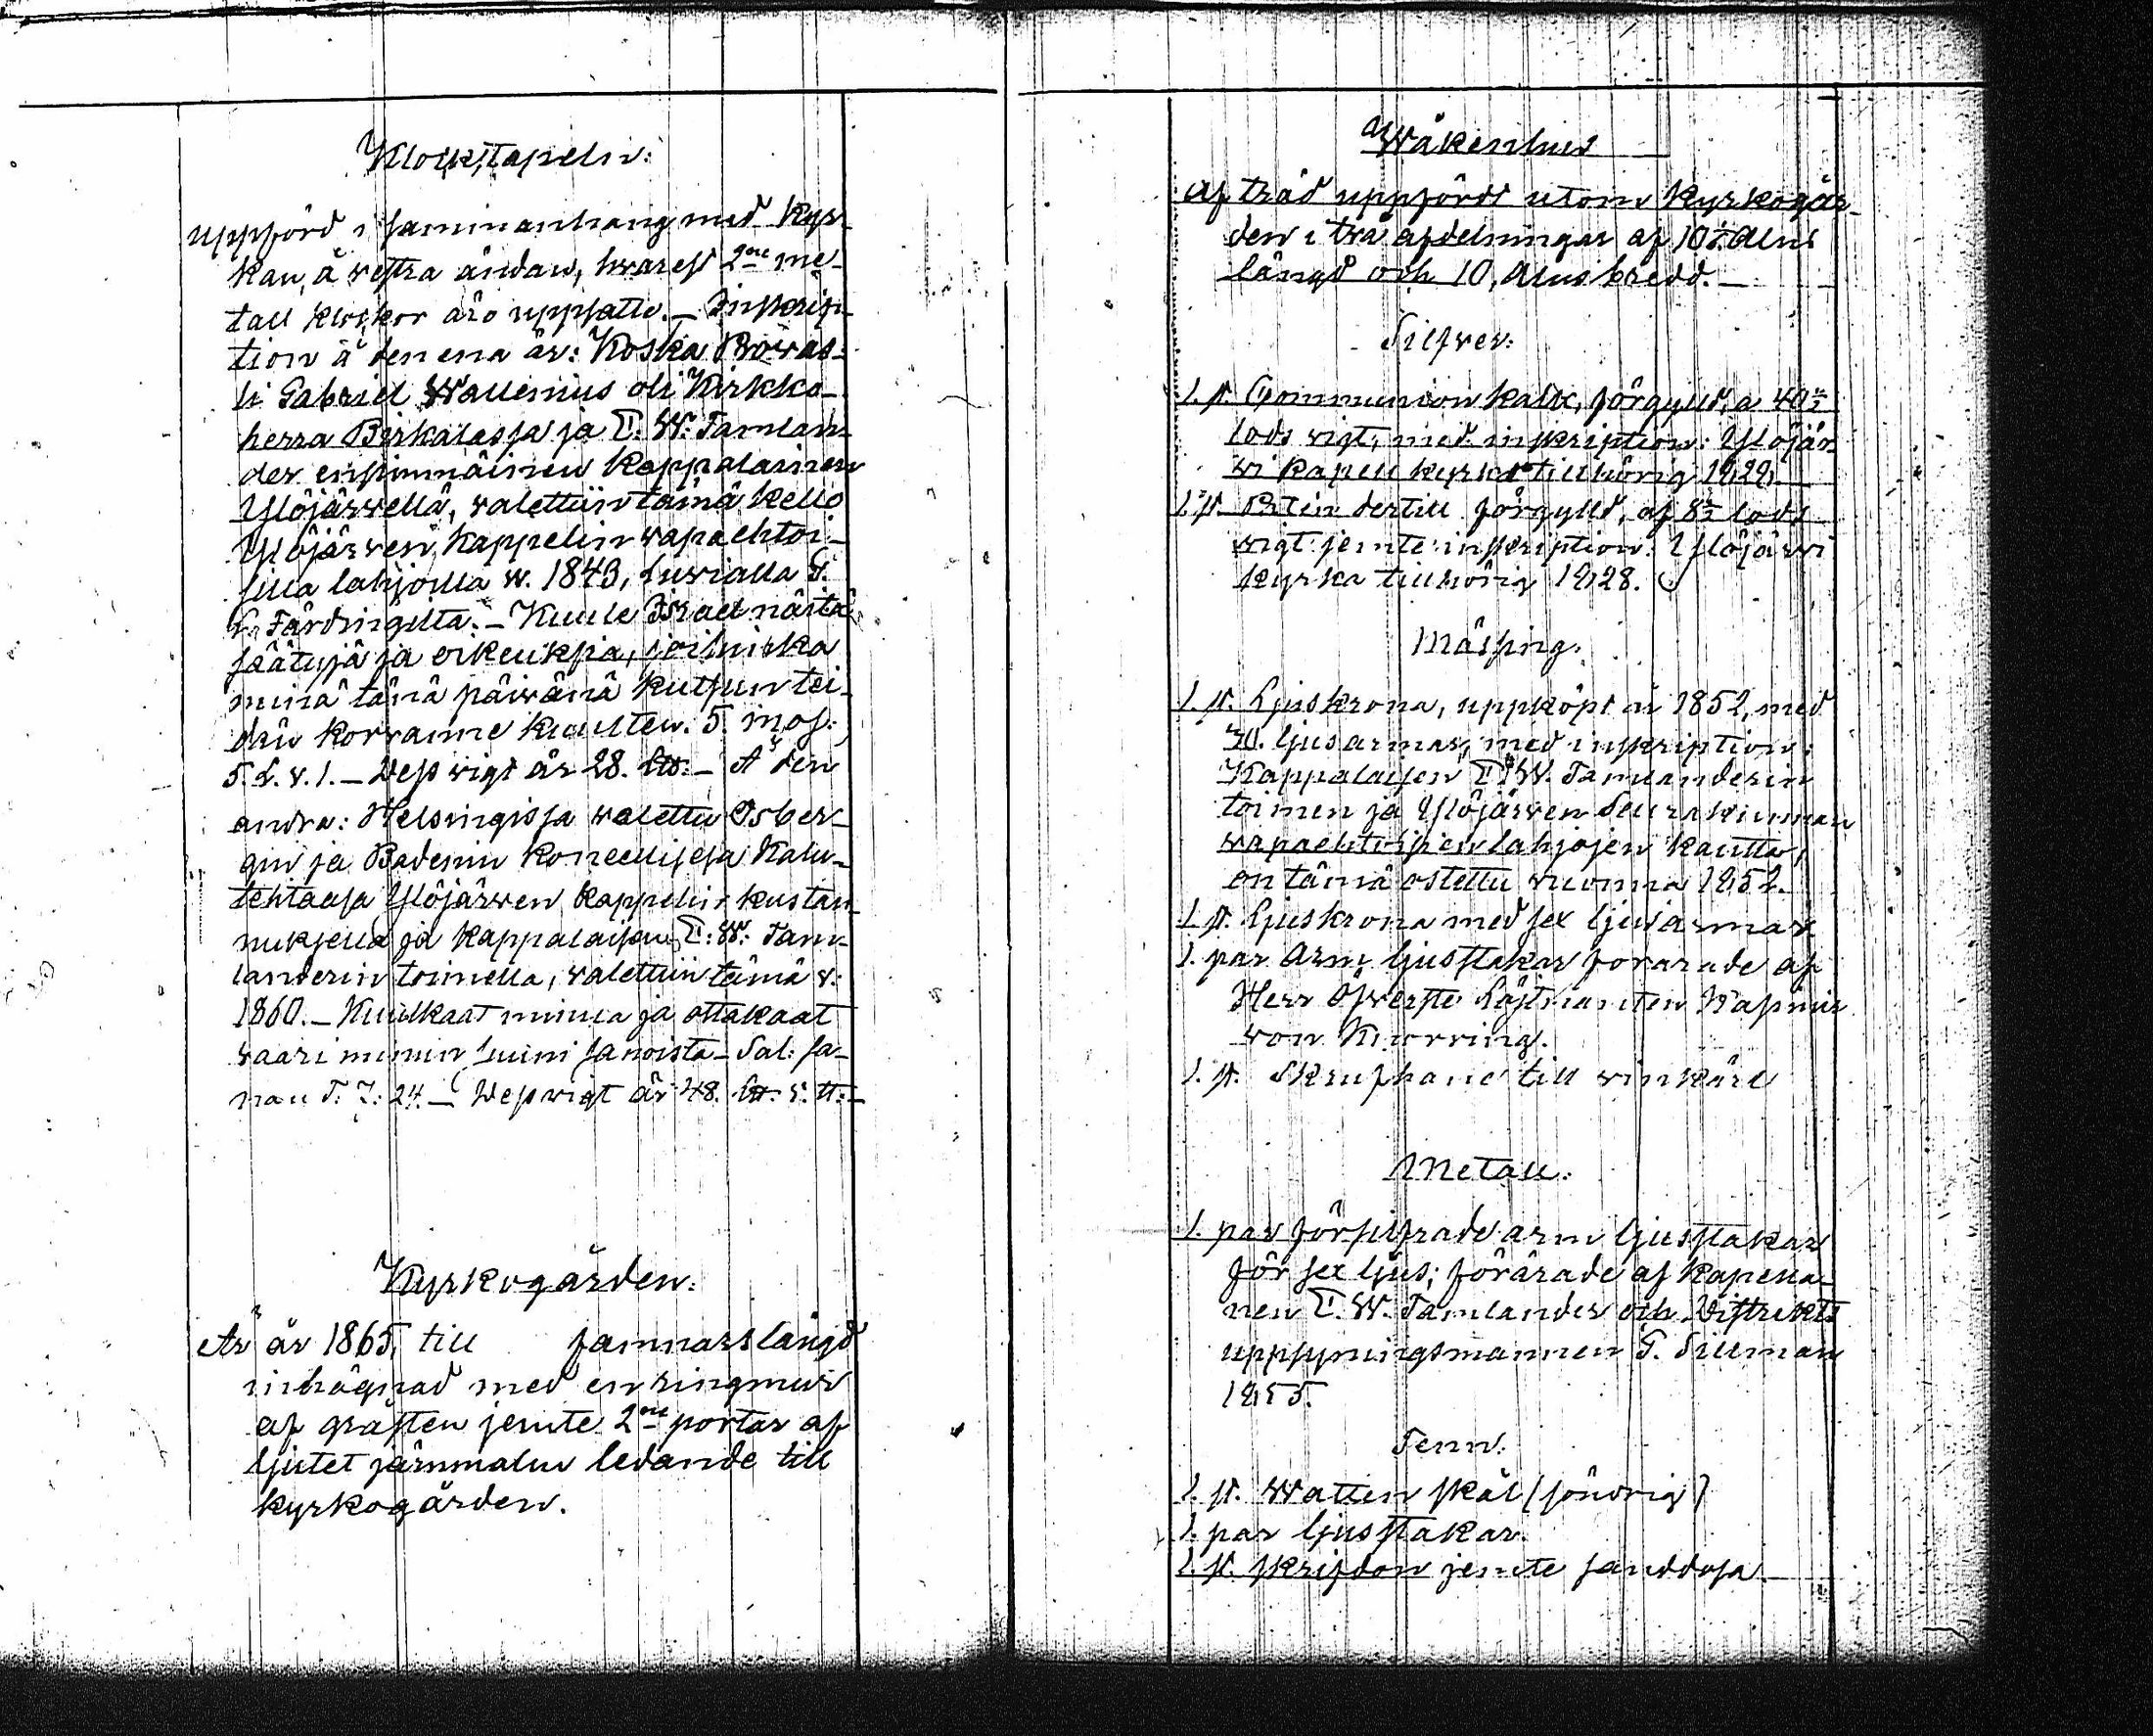 Klockstapeln:
uppförd i sammanhang med Kyr-
kan, å vestra ändan, hvarest 2ne me-
tall klockor äro uppsatte. – Inskrip-
tion å den ena är: Koska Rovas-
ti Gabriel Wallenius oli Kirkko-
herra Birkalassa ja T. W. Tamlan-
der ensimmäinen Kappalainen
Ylöjärvellä, valettiin tämä kello
Ylöjärven Kappelin vapaehtoi-
silla lahjoilla w. 1843,
Kuule Israel näitä
säätyjä ja oikeuksia, joihinka
minä tänä päivänä kutsun tei-
dän korvanne kuulten. 5. mos:
5. L. v. 1. – Dess vigt är 28. L℔: – Å den
andra: Helsingissa valettu Osber-
gin ja Badenin Koneellisesa Kalu-
tehtaasa Ylöjärven Kappelin kustan-
nuksella ja Kappalaisen T: W: Tam-
landerin toimella, valettiin tämä v:
1860. – Kuulkaat minua ja ottakaat
vaari minun suuni sanoista – Sal: Sa-
nan L. 7: 24. – Dess vigt är 48. L℔. 5. ℔: –
Kyrkogården:
År år 1865, till famnars längd
inhägnad med en ringmur
af gråsten jemte 2ne portar af
gjutet järnmalm ledande till
kyrkogården.
Wåkenhus
af träd uppfördt utom Kyrkogår-
den i två afdelningar af 10½ Alns
längd och 10, Alns bredd. –
Silfver:
1. st. Communion kalk, förgylld, a 40½
lods vigt, med inskription: Ylöjär-
vi Kapell kyrka tillhörig 1828.
1. st. Paten dertill förgylld, af 8½ lods
vigt jemte inskription: Ylöjärvi
kyrka tillhörig 1828.
Mässing.
1. st. Ljuskrona, uppköpt år 1852, med
30. ljusarmar, med inskription:
Kappalaisen T. W. Tamlanderin
toimen ja Ylöjärven Seurakunnan
vapaehtoisien lahjojen kautta,
on tämä ostettu vuonna 1852.
1. st. Ljuskrona med sex ljusarmar
1. par Arm ljusstakar förärade af
Herr Öfverste Löjtnanten
von Knorring.
1. st. Skrufhane till vinkärl
Metall:
1. par försilfrade arm ljusstakar
för sex ljus; förärade af Kapella-
nen T. W. Tamlander och Distrikts
uppsyningsmannen G. Sillman
1855.
Tenn:
1. st. Watten skål (sönrig)
1. par ljusstakar.
1. st. skrifdon jemte sanddosa